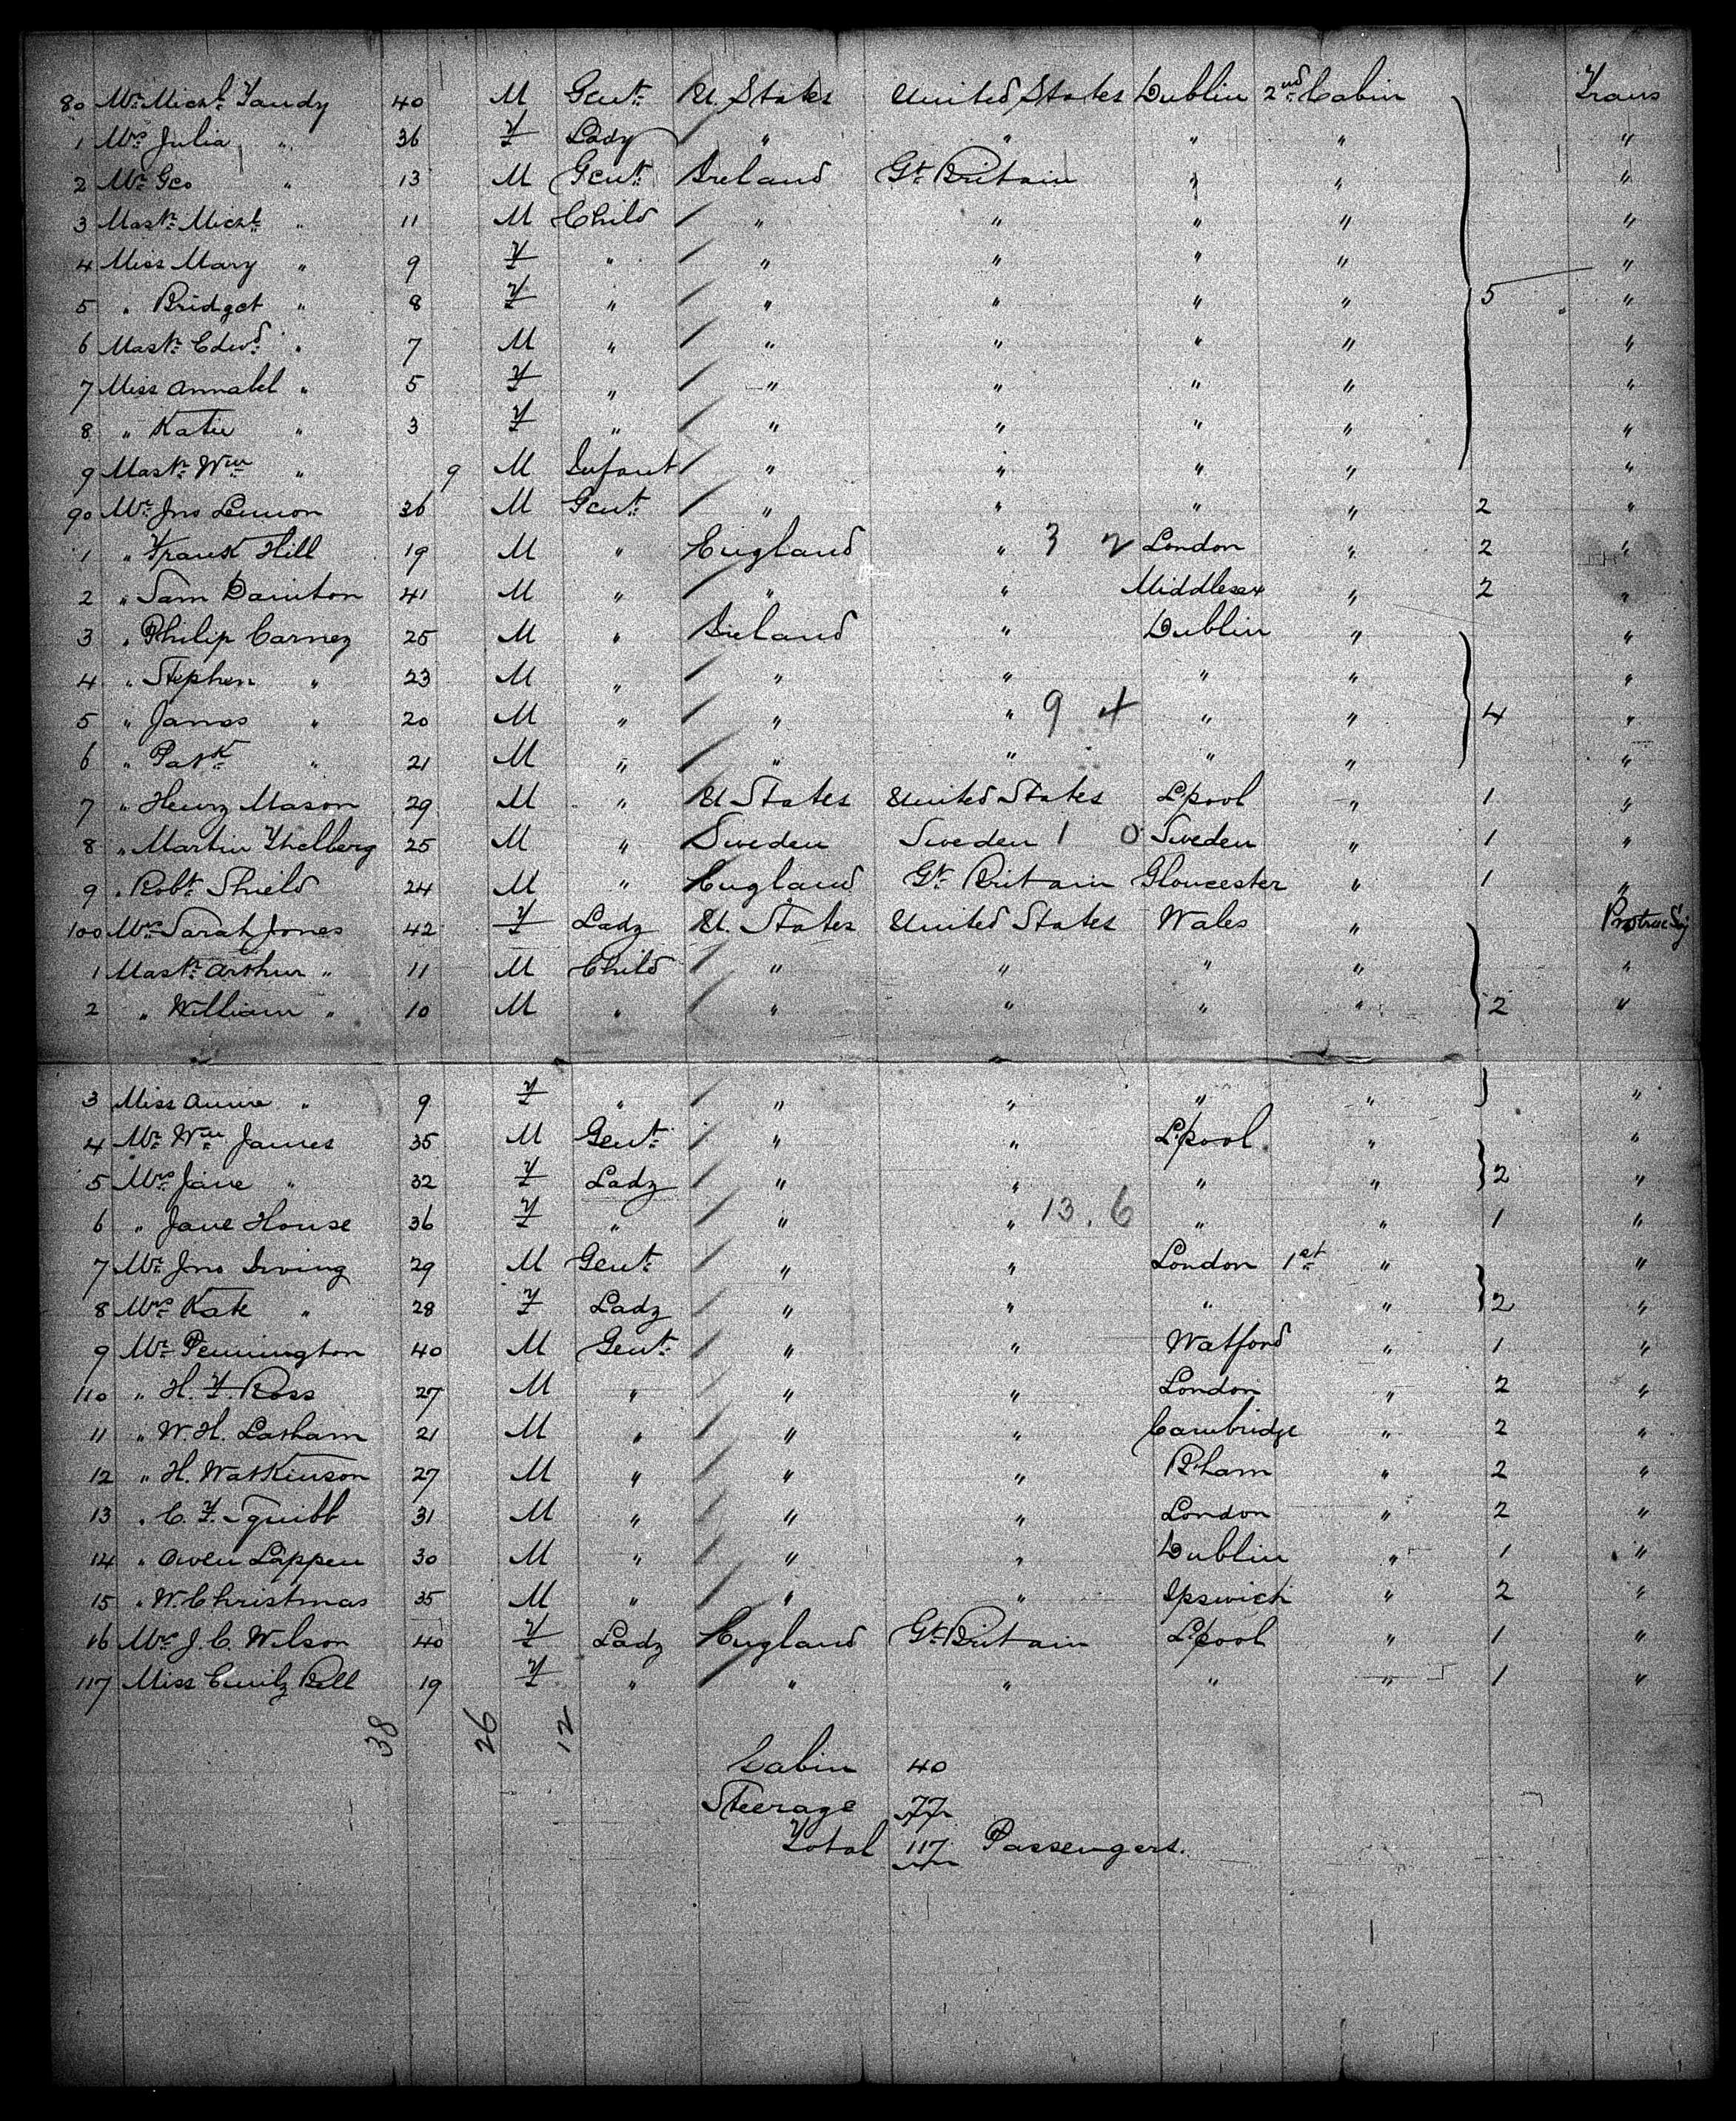 80 Mr. Michl. Tandy 40 M Gent. U. States United States Dublin 2nd Cabin Trans
1 Mrs Julia " 36 F Lady " " " " "
2 Mr. Geo " 13 M Gent. Ireland Gt. Britain " " "
3 Mastr. Michl. " 11 M Child " " " " "
4 Miss Mary " 9 F " " " " " "
5 " Bridget " 8 F " " " " " 5 "
6 Mastr. Edwd. " 7 M " " " " " "
7 Miss Annabel " 5 F " " " " " "
8 " Katie " 3 F " " " " " "
9 Mastr. Wm " 9 M Infant " " " " "
90 Mr. Jno Lennon 36 M Gent. " " " " 2 "
1 " Frank Hill 19 M " England " 3 2 London " 2 "
2 " Sam Dainton 41 M " " " Middlesex " 2 "
3 " Philip Carney 25 M " Ireland " Dublin " "
4 " Stephen " 23 M " " " " " "
5 " James " 20 M " " " 9 4 " " 4 "
6 " Patk. " 21 M " " " " " "
7 " Henry Mason 29 M " U States United States L'pool " 1 "
8 " Martin Thelberg 25 M " Sweden Sweden 1 0 Sweden " 1 "
9 " Robt. Shield 24 M " England Gt. Britain Gloucester " 1 "
100 Mrs. Sarah Jones 42 F Lady U. States United States Wales "
1 Mastr. Arthur " 11 M Child " " " " "
2 " William " 10 M " " " " " 2 "
3 Miss Annie " 9 F " " " " " "
4 Mr. Wm. James 35 M Gent. " " L'pool " "
5 Mrs. Jane " 32 F Lady " " " " 2 "
6 " Jane House 36 F " " " 13. 6 " " 1 "
7 Mr. Jno Irving 29 M Gent. " " London 1st " "
8 Mrs. Kate " 28 F Lady " " " " 2 "
9 Mr. Pennington 40 M Gent. " " Watford " 1 "
110 " H. F. Ross 27 M " " " London " 2 "
11 " W. H. Latham 21 M " " " Cambridge " 2 "
12 " H. Watkinson 27 M " " " B'ham " 2 "
13 " C. F. Squibb 31 M " " " London " 2 "
14 " Owen Lappen 30 M " " " Dublin " 1 "
15 " W. Christmas 35 M " " " Ipswich " 2 "
16 Mrs. J. C. Wilson 40 F Lady England Gt. Britain L'pool " 1 "
117 Miss Emily Bell 19 F " " " " " 1 "
38 26 12
Cabin 40
Steerage 77
Total 117 Passengers.